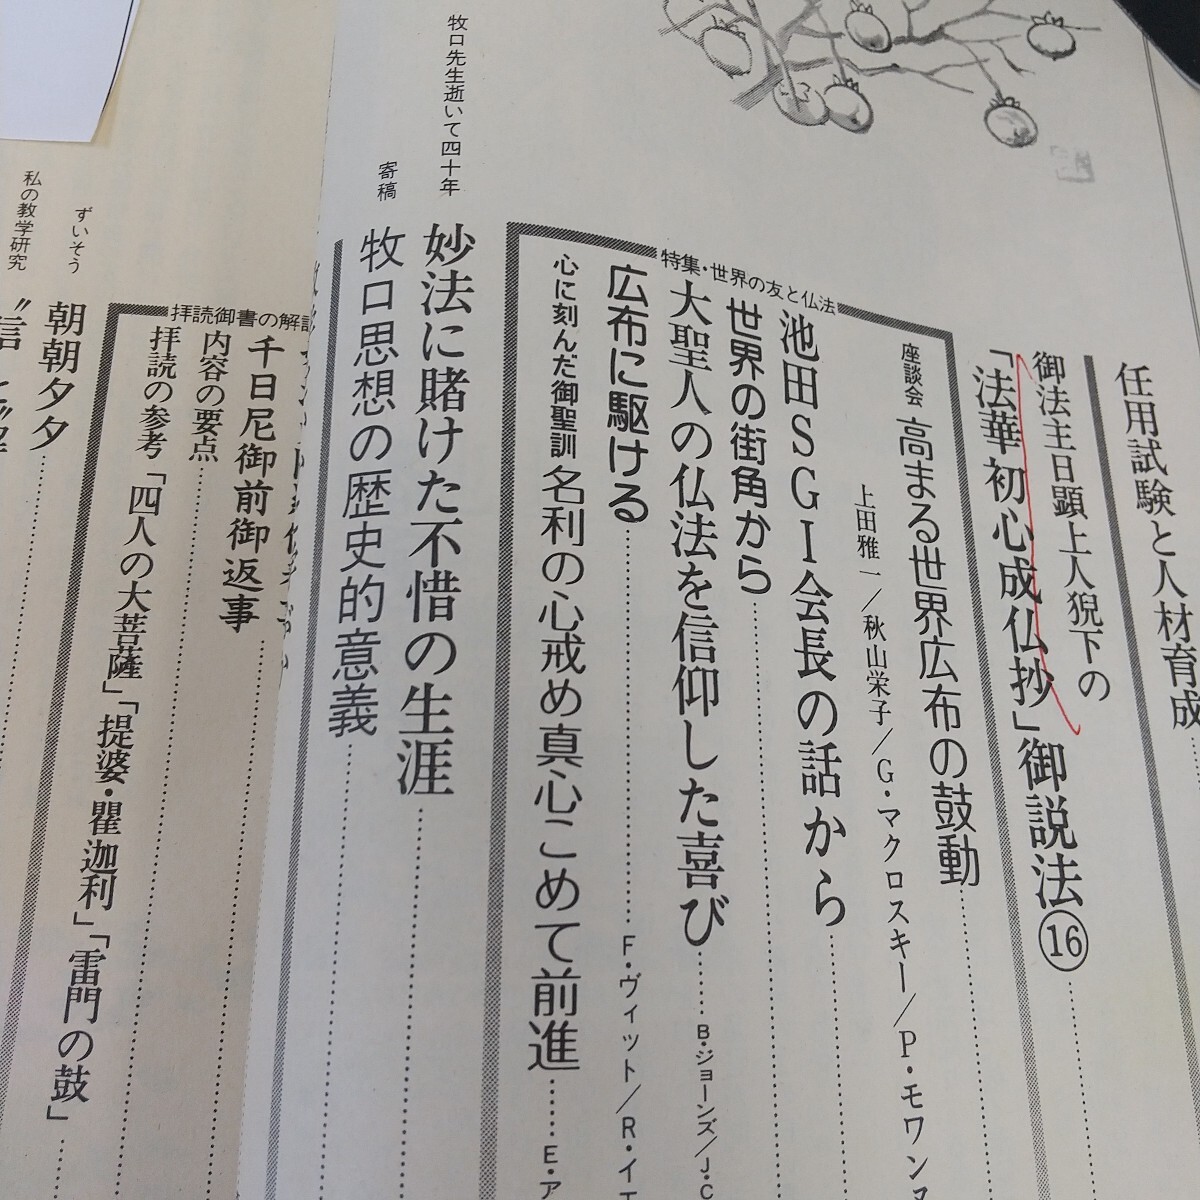 任用試験と人材育成
御法主日顕上人猊下の
「法華初心成仏抄」御説法⑯
特集・世界の友と仏法
座談会 高まる世界広布の鼓動
上田雅一/秋山栄子/G・マクロスキー/P・モワン
池田SGI会長の話から
世界の街角から
大聖人の仏法を信仰した喜び
B・ジョーンズ/J・C
広布に駆ける
F・ヴィット/R・イエ
心に刻んだ御聖訓 名利の心戒め真心こめて前進
E・ア
牧口先生逝いて四十年
妙法に賭けた不惜の生涯
寄稿
牧口思想の歴史的意義
拝読御書の解説
千日尼御前御返事
内容の要点
拝読の参考「四人の大菩薩」「提婆・瞿迦利」「雷門の鼓」
ずいそう
朝朝夕夕
私の教学研究